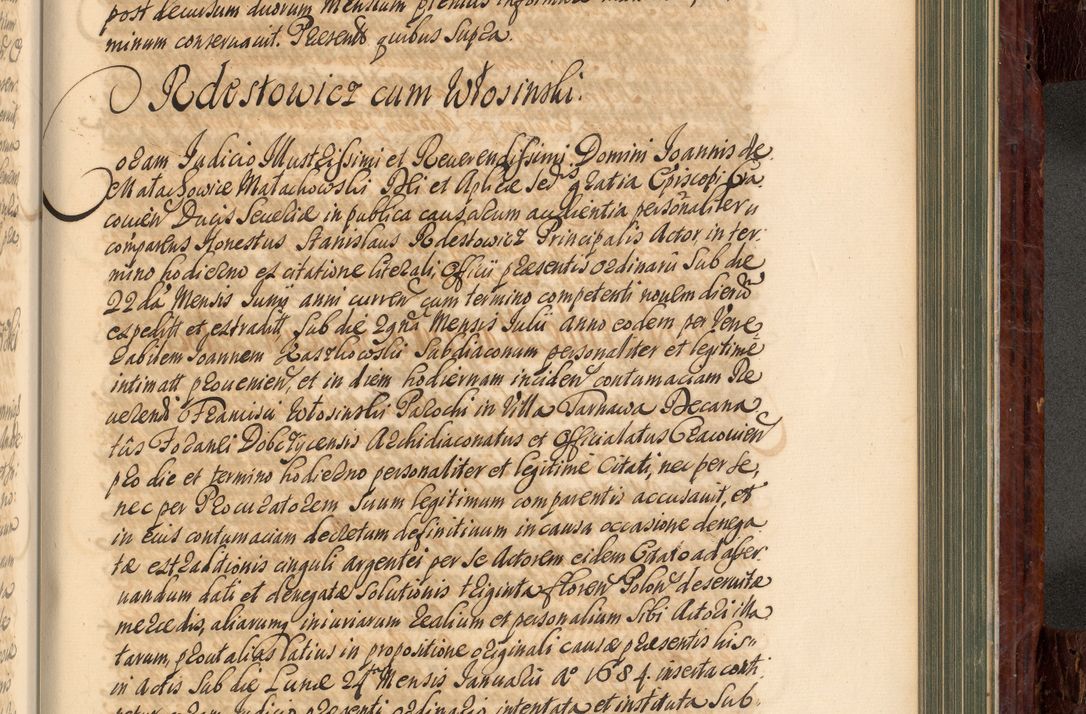 post decursum duorum Mensium plenius informare
minum conservavit. Præsentib quibus Supra.
Rdestowicz cum Włosinski.
Coram Judicio Illustrissimi et Reuerendissimi Domini Joannis de
Małachowice Małachowski Dei et Aplicæ Sed gratia Episcopi Cra
couien Ducis Seueriæ in publica causarum audientia personaliter
comparens Honestus Stanislaus Rdestowicz Principalis Actor, in ter
mino hodierno ex citatione literali, Officij præsentis ordinarii Sub die
22da Mensis Junij anni curren cum termino competenti nouem dierum
expeditt et extraditt Sub die 2gna Mensis Julii Anno eodem per Vene
rabilem Joannem Kaszkowski Subdiaconum personaliter et legitime
intimatt prouenien, et in diem hodiernam inciden contumaciam Re
uerendi Francisci Włosinski Parochi in Villa Tarnawa Decana
tûs Foranei Dobczycensis Archidiaconatus et Officialatus Cracouien
pro die et termino hodierno personaliter et legitime Citati, nec per se,
nec per Procuratorem Suum legitimum comparentis accusauit, et
in eius contumaciam decretum definitiuum in causa occasione denega
tæ extraditionis cinguli argentei per se Actorem eidem Citato ad asser
uandum dati et denegatæ Solutionis triginta floren Polon deseruitæ
mercedis, aliarumq iniuriarum realium et personalium Sibi Actori illa
tarum, prout alias latius in propositione originali causæ præsentis his
in Actis Sub die Lunæ 24 Mensis Januarii Ao 1684. inserta conti
netur coram Judicio præsenti ordinario intentata et instituta Sub